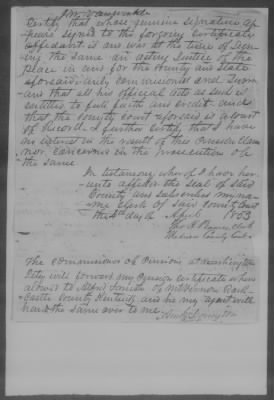 Certify that whose genuine signature ap-
pears signed to the forgoing certificate
affidavit is and was at the time of sign-
ing the same an acting Justice of the
Peace in and for the County and State
aforesaid duly commissioned and sworn
and that all his official acts as such is
entitled to full faith and credit and
that the County court aforsaid is a court
of Record. I further certify that I have
no interest in the result of this prosecution
nor concerned in the prosecution of
the same
In testimony whereof I have here
unto affixed the seal of said
County and subscribed my na-
me Clerk of said County Court
this day of April 1853
Clerk
County Court
The Commissioner of Pensions at Washington
City will forward my Pension certificate when
allowed to of Mt Vernon Rock-
Castle County Kentucky and he my agent will
hand the same over to me